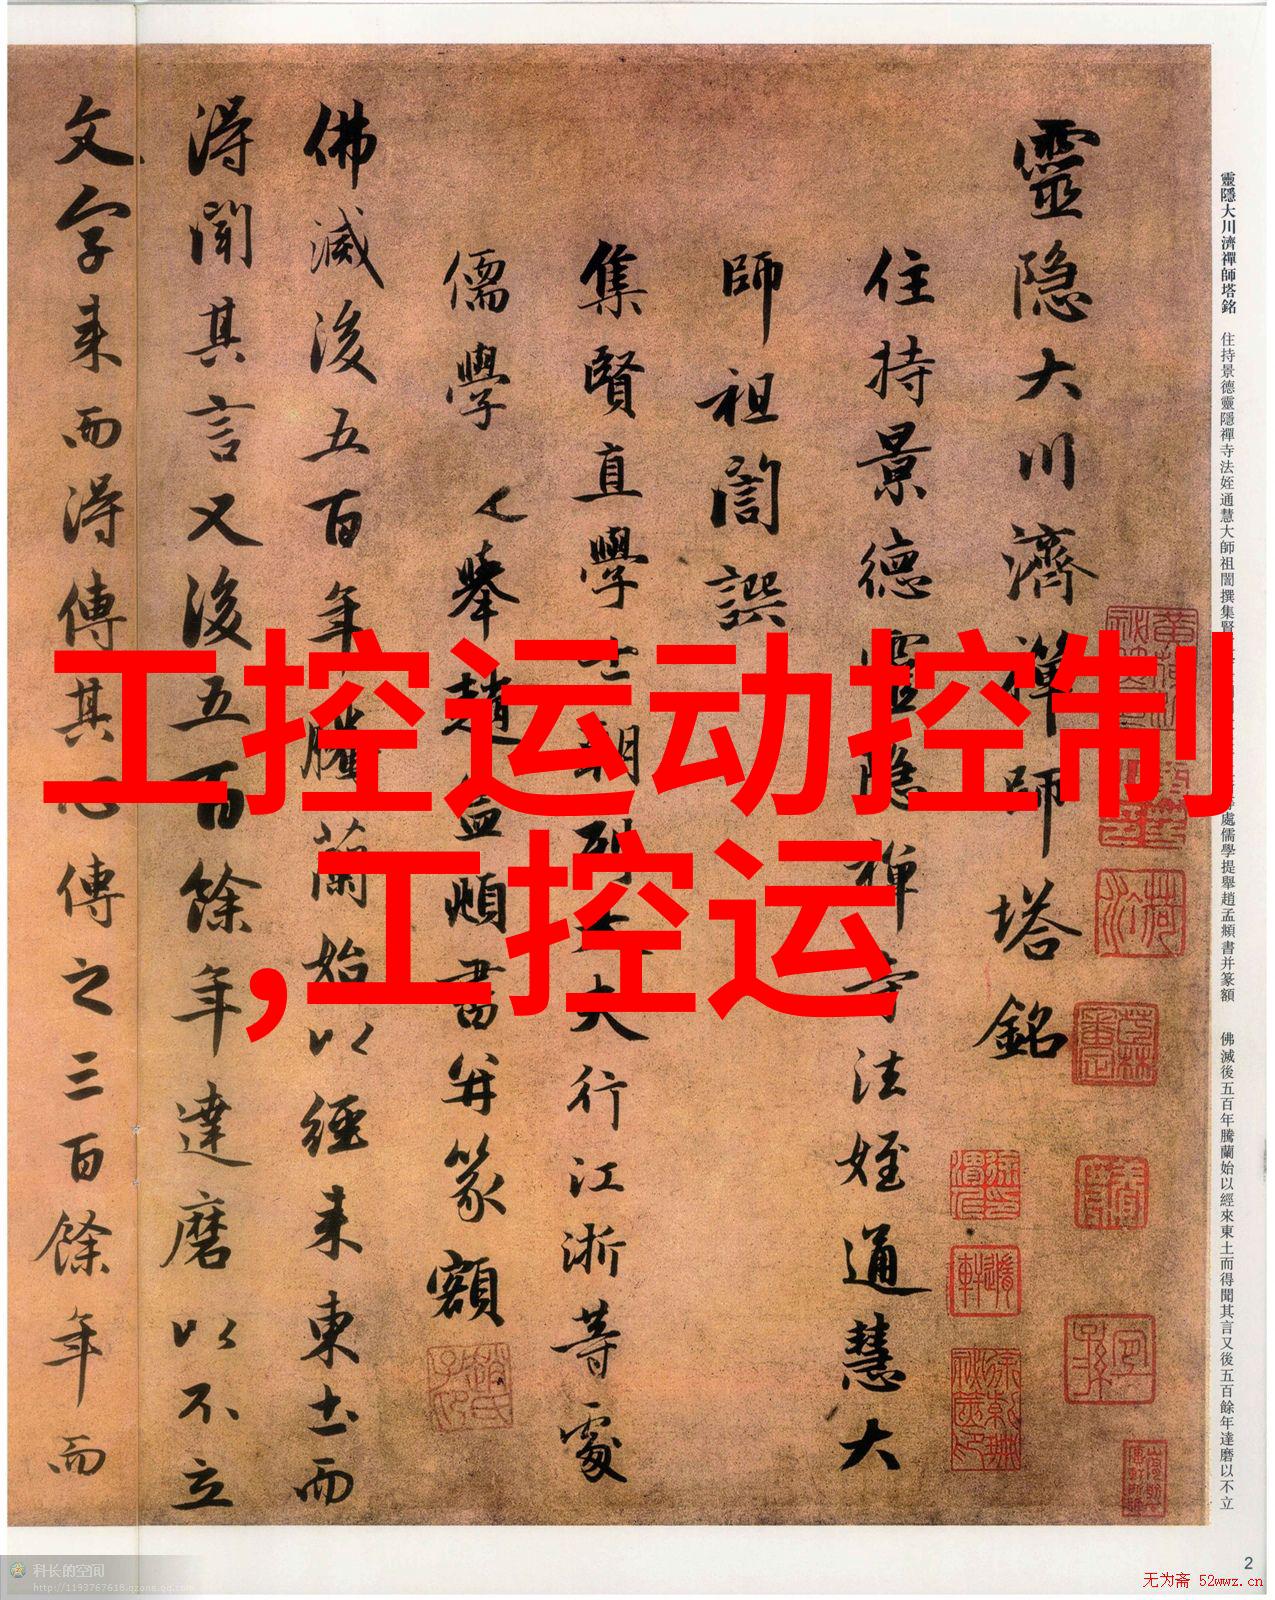 靈隐大川濟禅師塔銘
住持景德靈隐禅寺法姪通慧大
師祖誾譔
集賢直學士朝列大夫行江浙等處
儒學提舉趙孟頫書并篆額
佛滅後五百年騰蘭始以經来東土而
得聞其言又後五百餘年達磨以不立
文字来而得傳其心傳之三百餘年而
工控运动控制
,工控运
靈隱大川濟禪師塔銘 住持景德靈隱禪寺法姪通慧大師祖誾撰集賢 處儒學提舉趙孟頫書并篆額 佛滅後五百年騰蘭始以經來東土而得聞其言又後五百餘年達磨以不立
2
科长的空间
http://1193767618.qzone.qq.com
无为斋 52wwz.cn